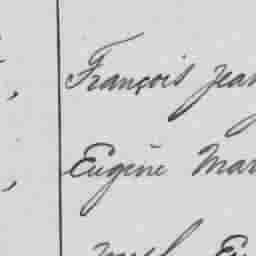 François Jean
Eugène Mar